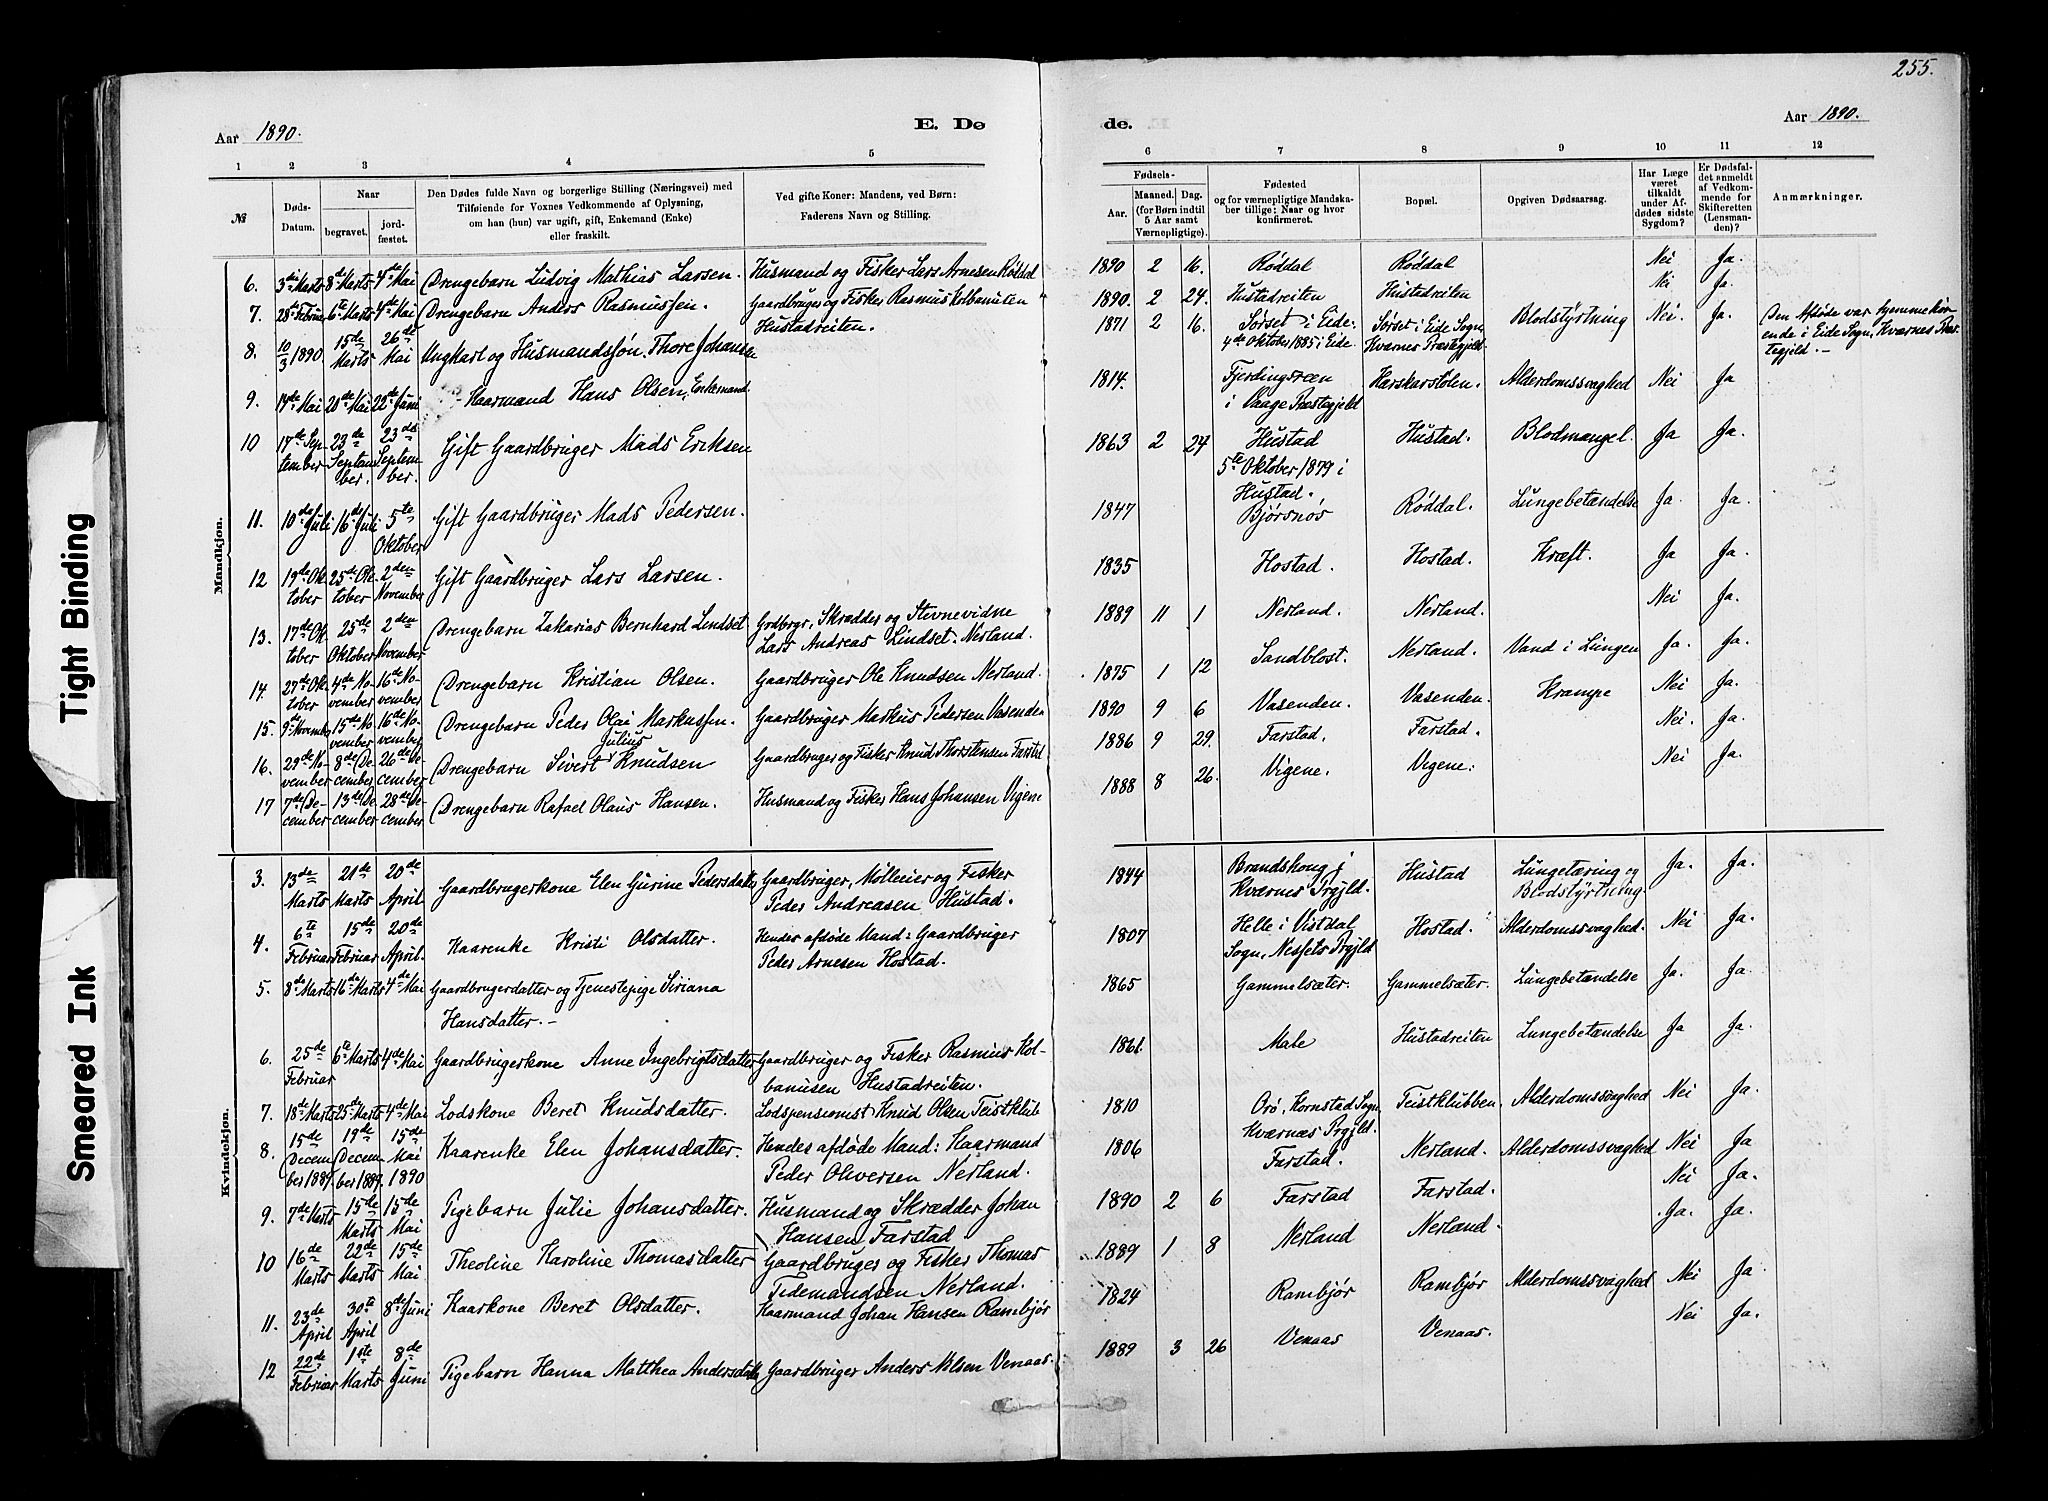 255.
Aar 1890.
E. Dø
de.
Aar 1890.
1 2 3 4 5
6 7 8 9 10 11 12
№
Døds-
Datum.
Naar
begravet.
jord-
fæstet.
Den Dødes fulde Navn og borgerlige Stilling (Næringsvei) med
Tilføiende for Voxnes Vedkommende af Oplysning,
om han (hun) var ugift, gift, Enkemand (Enke)
eller fraskilt.
Ved gifte Koner: Mandens, ved Børn:
Faderens Navn og Stilling.
Fødsels-
Aar.
Maaned. Dag.
(for Børn indtil
5 Aar samt
Værnepligtige).
Fødested
og for værnepligtige Mandska-
ber tillige: Naar og hvor
konfirmeret.
Bopæl.
Opgiven Dødsaarsag.
Har Læge
været
tilkaldt
under Af-
dødes sidste
Sygdom?
Er Dødsfal-
det anmeldt
af Vedkom-
mende for
Skifteretten
(Lensman-
den)?
Anmærkninger.
Mandkjøn.
6. 3die Marts 8de Marts 4de Mai Drengebarn Ludvig Mathias Larsen. Husmand og Fisker Lars Arnesen Røddal 1890 2 16. Røddal Røddal Nei Ja.
7. 28de Februar 6te Marts 4de Mai Drengebarn Anders Rasmussen. Gaardbruger og Fisker Rasmus Kolbanusen
Hustadreiten. 1890. 2 24. Hustadreiten Hustadreiten Nei Ja.
8. 10/3 1890 15de Marts 26de Mai Ungkarl og Husmandssøn Thore Johansen 1871 2 16. Sørset i Eide.
4de Oktober 1885 i Eide Sørset i Eide Sogn,
Kværnes Præstegjeld Blodstyrtning Nei. Ja. Den Afdøde var hjemmehør-
ende i Eide Sogn, Kværnes Præs-
tegjeld. -
9. 14de Mai 20de Mai 22de Juni Kaarmand Hans Olsen, Enkemand 1814. Fjerdingsreen
i Vaage Præstegjeld Harskarstølen. Alderdomssvaghed Nei Ja
10 17de Sep-
tember 23de Septem-
ber. 23de Septem-
ber. Gift Gaardbruger Mads Eriksen 1863 2 24 Hustad
5te Oktober 1879 i
Hustad. Hustad. Blodmangel. Ja Ja.
11. 10de Juli 16de Juli 5te Oktober Gift Gaardbruger Mads Pedersen. 1847 Bjørsnos Røddal. Lungebetændelse Ja. Ja.
12 19de Ok-
tober 25de Ok-
tober 2den November Gift Gaardbruger Lars Larsen. 1835 Hostad. Hostad. Kræft. Ja Ja.
13. 17de Ok-
tober 25de Oktober 2den November Drengebarn Zakarias Bernhard Lindset Grdbrgr, Skrædder og Stevnevidne
Lars Andreas Lindset. Nerland. 1889 11 1 Nerland. Nerland. Nei Ja.
14 27de Ok-
tober 4de No-
vember 16de No-
vember Drengebarn Kristian Olsen. Gaardbruger Ole Knudsen Nerland. 1875 1 12 Sandblost. Nerland. Vand i Lungen Ja. Ja.
15. 9de November 15de No-
vember 16de No-
vember Drengebarn Peder Olai Markussen. Gaardbruger Markus Pedersen Vasenden 1890 9 6 Vasenden. Vasenden. Krampe Nei Ja.
16. 29de No-
vember 8de De-
cember 26de De-
cember Drengebarn Sivert Julius Knudsen Gaardbruger og Fisker Knud Thorstensen Farstad 1886 9 29. Farstad. Farstad. Nei. Ja.
17 7de De-
cember 13de De-
cember 28de De-
cember Drengebarn Rafael Olaus Hansen. Husmand og Fisker Hans Johansen Vigene 1888 8 26. Vigene. Vigene. Nei Ja.
Kvindekjøn.
3. 13de Marts 21de Marts 20de April Gaardbrugerkone Elen Gurine Pedersdatter Gaardbruger, Møllerier og Fisker
Peder Andreasen Hustad. 1844 Brandshoug i
Kværnes Prgjld. Hustad Lungetæring og
Blodstyrtning Ja. Ja.
4. 6te Februar 15de Februar 20de April. Kaarenke Kristi Olsdatter. Hendes afdøde Mand: Gaardbruger
Peder Arnesen Hostad. 1807 Helle i Vistdal
Sogn, Nessets Prgjld Hostad. Alderdomssvaghed. Nei Ja.
5. 8de Marts 16de Marts 4de Mai Gaardbrugerdatter og Tjenestepige Siriana
Hansdatter. - 1865 Gammelsæter. Gammelsæter. Lungebetændelse Ja. Ja
6. 25de Februar 6te Marts 4de Mai Gaardbrugerkone Anne Ingebrigtsdatter Gaardbruger og Fisker Rasmus Kol-
banusen Hustadreiten. 1861. Male Hustadreiten Lungebetændelse Ja Ja.
7. 18de Marts 25de Marts 4de Mai Lodskone Beret Knudsdatter. Lodspensionist Knud Olsen Teistklub 1810 Orø, Kornstad Sogn,
Kværnæs Prgjld. Teistklubben. Alderdomssvaghed Nei Ja.
8. 15de Decem-
ber 1889 19de Decem-
ber 1889. 15de Mai 1890 Kaarenke Elen Johansdatter. Hendes afdøde Mand: Kaarmand
Peder Oliversen Nerland. 1806 Farstad. Nerland. Alderdomssvaghed Nei Ja
9. 7de Marts 15de Marts 15de Mai Pigebarn Julie Johansdatter. Husmand og Skrædder Johan
Hansen Farstad 1890 2 6 Farstad Farstad. Nei Ja.
10 16de Marts 22de Marts 15de Mai Theoline Karoline Thomasdatter Gaardbruger og Fisker Thomas
Tidemandsen Nerland. 1889 1 8 Nerland Nerland. Ja. Ja.
11. 23de April 30te April 8de Juni Kaarkone Beret Olsdatter. Kaarmand Johan Hansen Rambjør 1824 Rambjør Rambjør Alderdomssvaghed Nei Ja
12 22de Februar 1ste Marts 8de Juni Pigebarn Hanna Matthea Andersdatter Gaardbruger Anders Nilsen Venaas. 1889 3 26 Venaas Venaas. Nei Ja.
Tight Binding
Smeared Ink